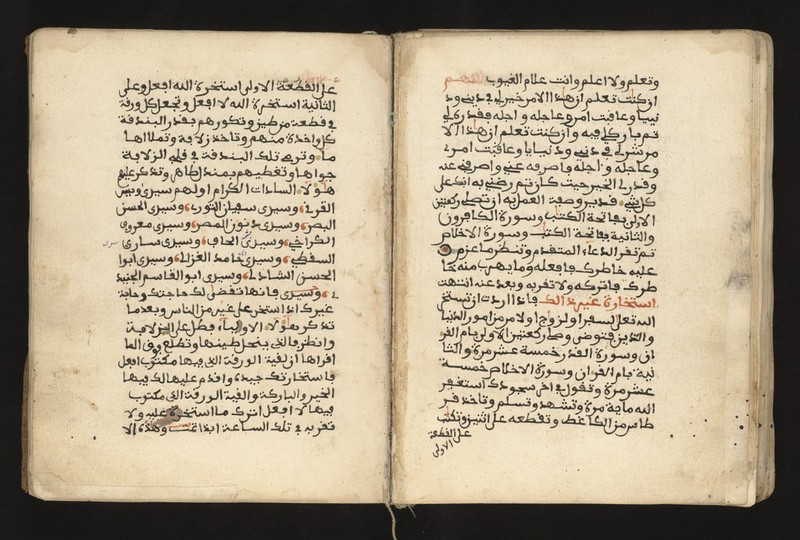 وتعلم ولا اعلم وانت علام الغيوب اللهم
ان كنت تعلم ان هذا الامر خير لي في ديني ود
نيايا وعاقبت امري وعاجله واجله فقدره لي
ثم بارك لي فيه وان كنت تعلم ان هذا الا
مر شر لي في ديني ودنيايا وعاقبت امري
وعاجله واجله واصرفه عني واصرفني عنه
وقدر لي الخير حيث كان ثم رضني به انك على
كل شيء قدير وصفة العمل به ان تصلي ركعتين
الاولى بفاتحة الكتاب وسورة الكافرون
والثانية بفاتحة الكتاب وسورة الاخلاص
ثم تقرا الدعاء المتقدم وتنظر ما عزم
عليه خاطرك فافعله وما يهرب منه خا
طرك فاتركه ولا تقربه وبعد عنه انتهت
استخارة غير ذالك فاذا اردت ان تستخر
الله تعلى لسفر او لزواج او لامر من امور الدنيا
والدين فتوضى وصل ركعتين الاولى بام القر
ان وسورة القدر خمسة عشر مرة والثا
نية بام القران وسورة الاخلاص خمسة
عشر مرة وتقول في اخر سجودك استغفر
الله ماية مرة وتشهد وتسلم وتاخذ قر
طاس من الكاغط وتقطعه على اثنين وتكتب
على القطعة
الاولى
على القطعة الاولى استخرة الله افعل وعلى
الثانية استخرة الله لا افعل وتجعل كل ورقة
في قطعة من طين وتكورهم بقدر البندقة
كل واحدة منهم وتاخذ زلافة وتملاها
ما وترمي تلك البندقة في قلب الزلافة
جواها وتغطيهم بمنديل طاهر وتذكر عليها
هؤلاء السادات الكرام اولهم سيدي ويس
القرني وسيدي سفيان الثوري وسيدي الحسن
البصري وسيدي ذنون المصري وسيدي معروف
الكرخي وسيدي الحافي وسيدي ساري
السقطي وسيدي حامد الغزالي وسيدي ابوا
الحسن الشاذلي وسيدي ابو القاسم الجنيد
ي وسيدي فانها تقضى لك حاجتك وحاجة
غيرك اذا استخر على غير من الناس وبعدما
تذكر هؤلاء الاوليا فطل على الزلافة
وانظر ما الي ينحل طينها وتطلع فوق الما
اقراها ان لقيت الورقة الي فيها مكتوب افعل
فاستخارتك جيدة واقدم عليها لك فيها
الخير والباركة والقية الورقة الي مكتوب
فيها لا افعل اترك ما استخرة عليه ولا
تقربه في تلك الساعة ابدا تمت وهذه الا